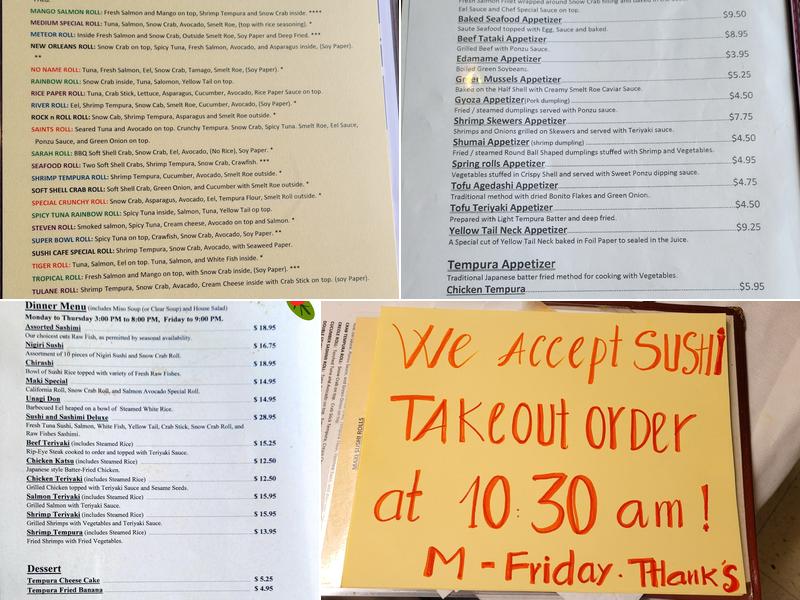 MANGO SALMON ROLL: Fresh Salmon and Mango on top, Shrimp Tempura and Snow Crab inside. ****
MEDIUM SPECIAL ROLL: Tuna, Salmon, Snow Crab, Avocado, Smelt Roe, (top with rice seasoning). *
METEOR ROLL: Inside Fresh Salmon and Snow Crab, Outside Smelt Roe, Soy Paper and Deep Fried. ***
NEW ORLEANS ROLL: Snow Crab on top, Spicy Tuna, Fresh Salmon, Avocado, and Asparagus inside, (Soy Paper).
**
NO NAME ROLL: Tuna, Fresh Salmon, Eel, Snow Crab, Tamago, Smelt Roe, (Soy Paper). *
RAINBOW ROLL: Snow Crab inside, Tuna, Salomon, Yellow Tail on top.
RICE PAPER ROLL: Tuna, Crab Stick, Lettuce, Asparagus, Cucumber, Avocado, Rice Paper Sauce on top.
RIVER ROLL: Eel, Shrimp Tempura, Snow Cab, Smelt Roe, Cucumber, Avocado, (Soy Paper). *
ROCK n ROLL ROLL: Snow Cab, Shrimp Tempura, Asparagus and Smelt Roe outside. *
SAINTS ROLL: Seared Tuna and Avocado on top. Crunchy Tempura. Snow Crab, Spicy Tuna. Smelt Roe, Eel Sauce,
Ponzu Sauce, and Green Onion on top.
SARAH ROLL: BBQ Soft Shell Crab, Snow Crab, Eel, Avocado, (No Rice), Soy Paper. *
SEAFOOD ROLL: Two Soft Shell Crabs, Shrimp Tempura, Snow Crab, Crawfish. ***
SHRIMP TEMPURA ROLL: Shrimp Tempura, Cucumber, Avocado, Smelt Roe outside. *
SOFT SHELL CRAB ROLL: Soft Shell Crab, Green Onion, and Cucumber with Smelt Roe outside. *
SPECIAL CRUNCHY ROLL: Snow Crab, Asparagus, Avocado, Eel, Tempura Flour, Smelt Roll outside. *
SPICY TUNA RAINBOW ROLL: Spicy Tuna inside, Salmon, Tuna, Yellow Tail op top.
STEVEN ROLL: Smoked salmon, Spicy Tuna, Cream cheese, Avocado on top and Salmon. *
SUPER BOWL ROLL: Spicy Tuna on top, Crawfish, Snow Crab, Avocado, Soy Paper. **
SUSHI CAFE SPECIAL ROLL: Shrimp Tempura, Snow Crab, Avocado, with Seaweed Paper.
TIGER ROLL: Tuna, Salmon, Eel on top. Tuna, Salmon, and White Fish inside. *
TROPICAL ROLL: Fresh Salmon and Mango on top, with Snow Crab inside, (Soy Paper). ***
TULANE ROLL: Shrimp Tempura, Snow Crab, Avocado, Cream Cheese inside with Crab Stick on top. (soy Paper).
Eel Sauce and Chef Special Sauce on top.
Baked Seafood Appetizer $9.50
Saute Seafood topped with Egg, Sauce and baked.
Beef Tataki Appetizer $8.95
Grilled Beef with Ponzu Sauce.
Edamame Appetizer $3.95
Boiled Green Soybeans.
Mussels Appetizer $5.25
Baked on the Half Shell with Creamy Smelt Roe Caviar Sauce.
Gyoza Appetizer(Pork dumpling) $4.50
Fried / steamed dumplings served with Ponzu sauce.
Shrimp Skewers Appetizer $7.75
Shrimps and Onions grilled on Skewers and served with Teriyaki sauce.
Shumai Appetizer (shrimp dumpling) $4.50
Fried / steamed Round Ball Shaped dumplings stuffed with Shrimp and Vegetables.
Spring rolls Appetizer $4.95
Vegetables stuffed in Crispy Shell and served with Sweet Ponzu dipping sauce.
Tofu Agedashi Appetizer $4.75
Traditional method with dried Bonito Flakes and Green Onion.
Tofu Teriyaki Appetizer $4.50
Prepared with Light Tempura Batter and deep fried.
Yellow Tail Neck Appetizer $9.25
A Special cut of Yellow Tail Neck baked in Foil Paper to sealed in the Juice.
Tempura Appetizer
Traditional Japanese batter fried method for cooking with Vegetables.
Chicken Tempura $5.95
Dinner Menu (includes Miso Soup (or Clear Soup) and House Salad)
Monday to Thursday 3:00 PM to 8:00 PM, Friday to 9:00 PM.
Assorted Sashimi $ 18.95
Our choicest cuts Raw Fish, as permitted by seasonal availability.
Nigiri Sushi $ 16.75
Assortment of 10 pieces of Nigiri Sushi and Snow Crab Roll.
Chirashi $ 18.95
Bowl of Sushi Rice topped with variety of Fresh Raw Fishes.
Maki Special $ 14.95
California Roll, Snow Crab Roll, and Salmon Avocado Special Roll.
Unagi Don $ 14.95
Barbecued Eel heaped on a bowl of Steamed White Rice.
Sushi and Sashimi Deluxe $ 28.95
Fresh Tuna Sushi, Salmon, White Fish, Yellow Tail, Crab Stick, Snow Crab Roll, and
Raw Fishes Sashimi.
Beef Teriyaki (includes Steamed Rice) $ 15.25
Rip-Eye Steak cooked to order and topped with Teriyaki Sauce.
Chicken Katsu (includes Steamed Rice) $ 12.50
Japanese style Batter-Fried Chicken.
Chicken Teriyaki (includes Steamed Rice) $ 12.50
Grilled Chicken topped with Teriyaki Sauce and Sesame Seeds.
Salmon Teriyaki (includes Steamed Rice) $ 15.95
Grilled Salmon with Teriyaki Sauce.
Shrimp Teriyaki (includes Steamed Rice) $ 15.95
Grilled Shrimps with Vegetables and Teriyaki Sauce.
Shrimp Tempura (includes Steamed Rice) $ 13.95
Fried Shrimps with Fried Vegetables.
Dessert
Tempura Cheese Cake $ 5.25
Tempura Fried Banana $ 4.95
MAKI SUSHI ROLLS
We Accept SUSHI
TAKEOUT ORDER
at 10:30 am!
M - Friday. THank's